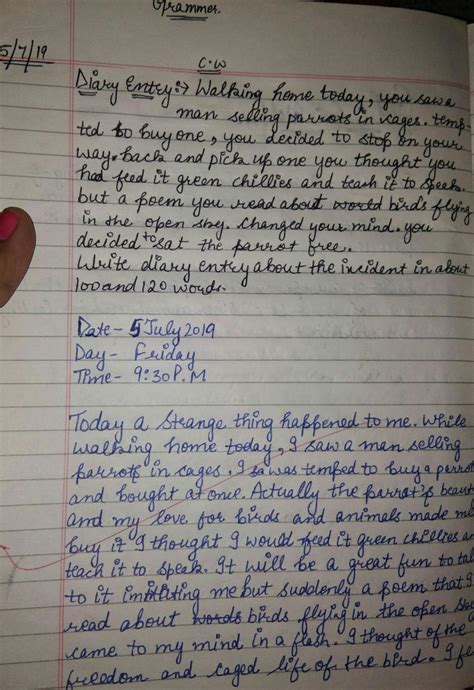 Grammer.
5/7/19
C.W
Diary Entry:→ Walking home today, you saw a
man selling parrots in cages. temp-
ted to buy one, you decided to stop on your
way. back and pick up one you thought you
had feed it green chillies and teach it to speak.
but a poem you read about world birds flying
in the open sky. Changed your mind. you
decided to sat the parrot free.
Write diary entry about the incident in about
100 and 120 words.
Date- 5 July 2019
Day- Friday
Time- 9:30 P.M
Today a strange thing happened to me. While
walking home today, I saw a man selling
parrots in cages. I was temped to buy a parrot
and bought at once. Actually the parrot's beaut
and my love for birds and animals made me
buy it I thought I would feed it green chillies an
teach it to speak. It will be a great fun to tal
to it imitating me but suddenly a poem that I
read about words birds flying in the open sk
came to my mind in a flash. I thought of the
freedom and caged life of the bird. I fe